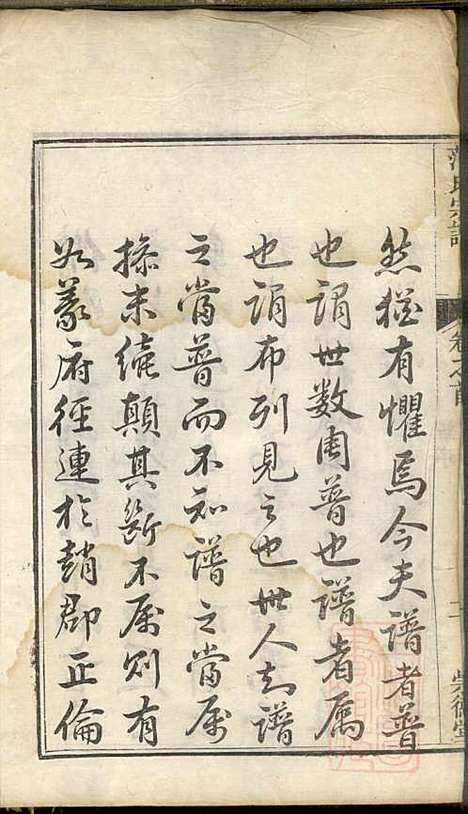 然猶有懼焉今夫譜者普
也謂世數周普也譜者属
也謂布列見之也世人知譜
之當普而不知譜之當属
探末續顛其斷不属则有
如義府徑連於趙郡正倫
氏宗譜
卷之首